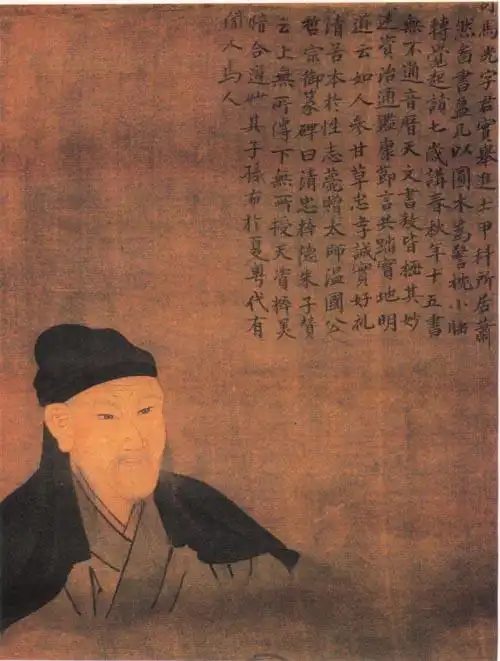 司馬光字君實舉進士甲科所居蕭
然啚書盈几以圓木為警枕小睡
轉覺起讀七歲講春秋年十五書
無不通音曆天文書数皆極其妙
述資治通鑑康節言其踏實地明
道云如人參甘草忠孝誠實好礼
清苦本於性志薨贈太師溫國公
哲宗御篆碑曰清忠粹德朱子贊
云上無所傳下無所授天資粹美
暗合道妙其子孫布於夏粵代有
聞人焉